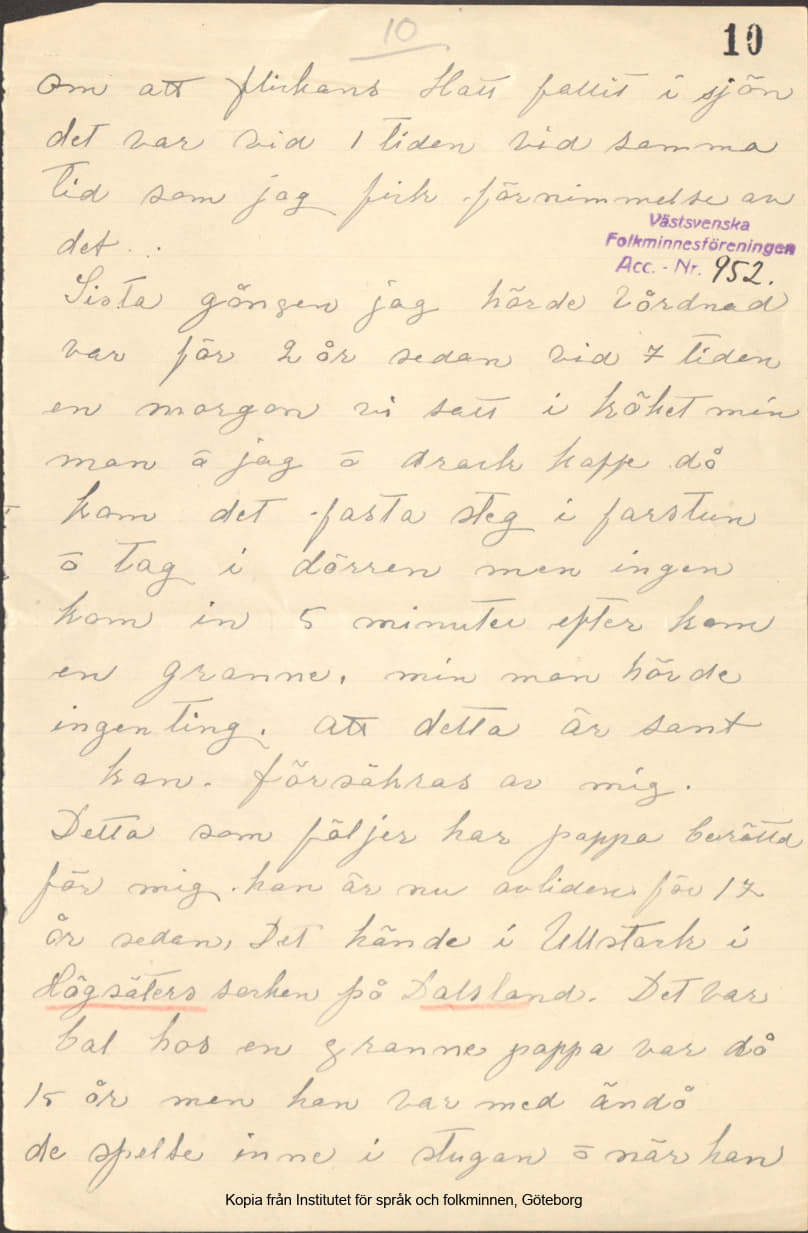 10
10
om att flickans Hatt fallit i sjön
det var vid 1 tiden vid samma
tid som jag fick förnimmelse av
det.
Västsvenska
Folkminnesföreningen
Acc. - Nr. 952.
Sista gången jag hörde Vårdnad
var för 2 år sedan vid 7 tiden
en morgon vi satt i köket min
man å jag å drack kaffe då
kom det fasta steg i farstun
å tag i dörren men ingen
kom in 5 minuter efter kom
en granne. min man hörde
ingenting. att detta är sant
kan försäkras av mig.
Detta som följer har pappa berätta
för mig. han är nu avliden för 17
år sedan, Det hände i Ullstack i
Högsäters socken på Dalsland. Det var
bal hos en granne pappa var då
15 år men han var med ändå
de spelte inne i stugan å när han
Kopia från Institutet för språk och folkminnen, Göteborg